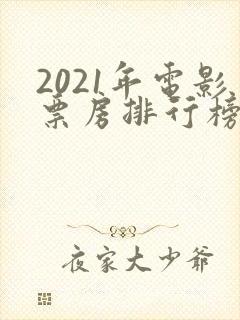 2021年電影
票房排行榜
夜家大少爺